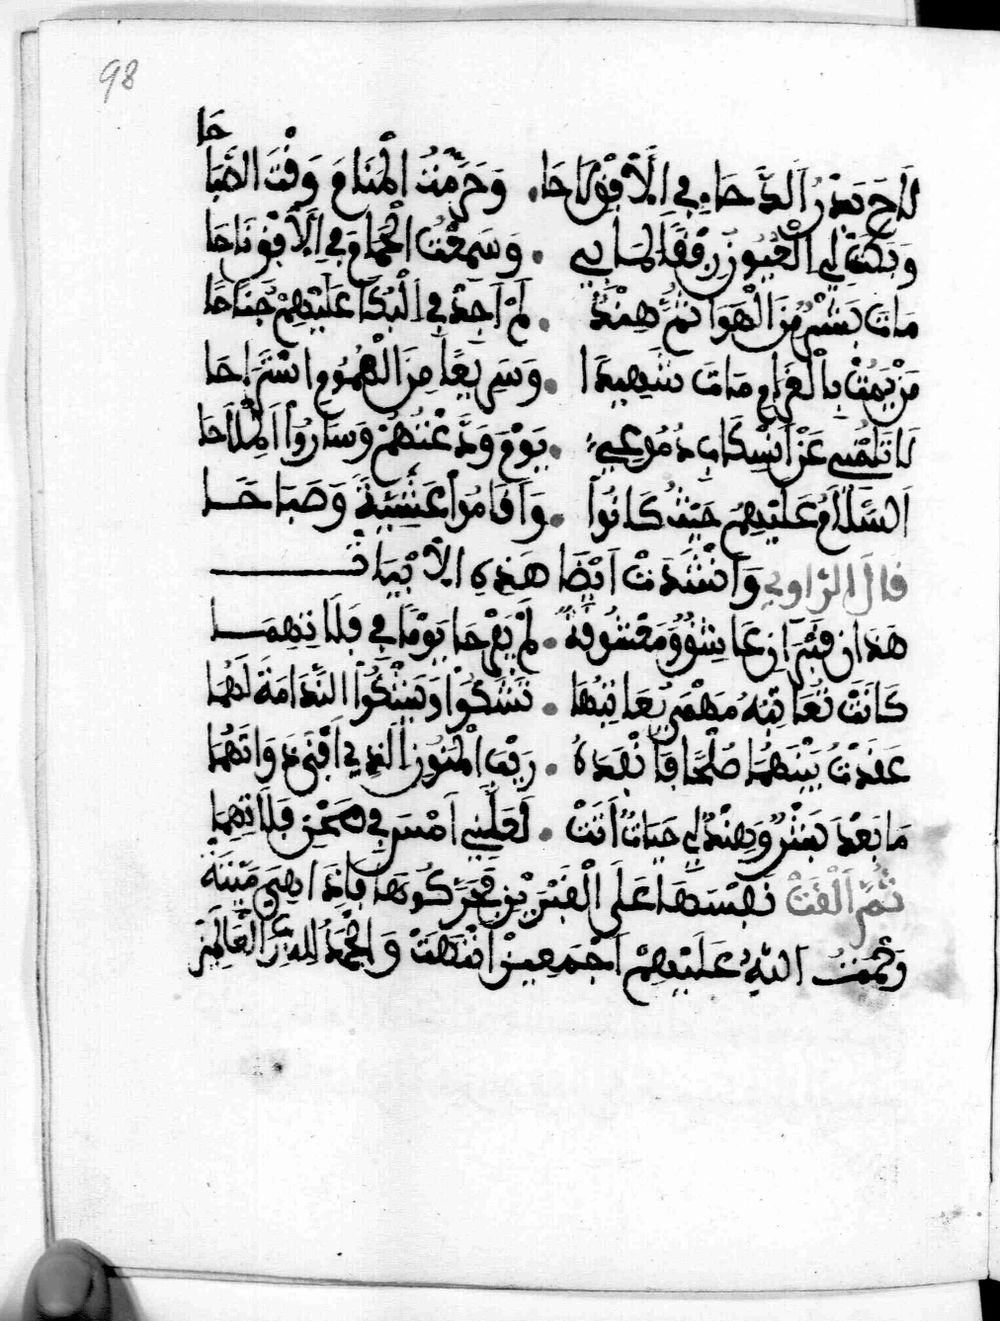 98
حا
لاح بدر الدجاء في الافق لاحا . وحرمت المنام وقت الصبا
وبكت لي العيون رفقا لما بي . وسمعت الحمام في الافق ناحا
مات بشر من الهوا ثم هند . لم اجد في البكا عليهم جناحا
من يمت بالغرام مات شهيدا . وسريعا من الهموم استراحا
لا تلمني عن انسكاب دموعي . يوم ودعتهم وساروا الملاحا
السلام عليهم حيث كانوا . واقاموا عشية وصباحـا
قال الراوي وانشدت ايضا هذه الابيات
هذان قبران عاشق ومعشوقة . لم يفرحا يوما في فلاتهمـا
كانت تعاتبه مهمى يعاتبها . تشكوا ويشكوا الندامة لهما
عقدت بينهما صلحا فانفده . ريب المنون الذي افنى ذواتهما
ما بعد بشر وهند لي حيات اتت . لعلني امس في صحن فلاتهما
ثم القت نفسها على القبرين فحركوها فاذا هي ميتة
رحمت الله عليهم اجمعين انتهت والحمد لله رب العالمين